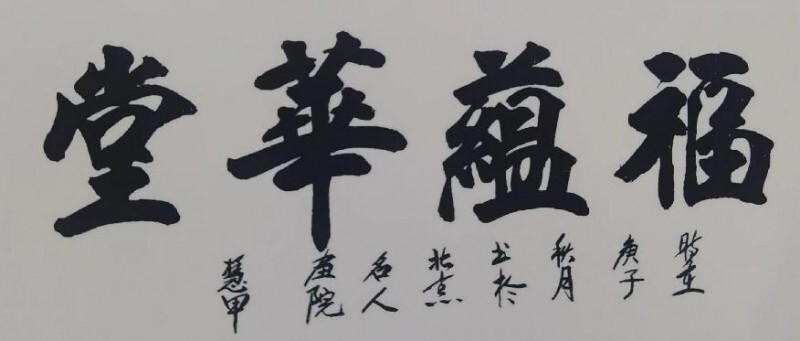 福蘊華堂
時在
庚子
秋月
书於
北京
名人
畫院
慧甲